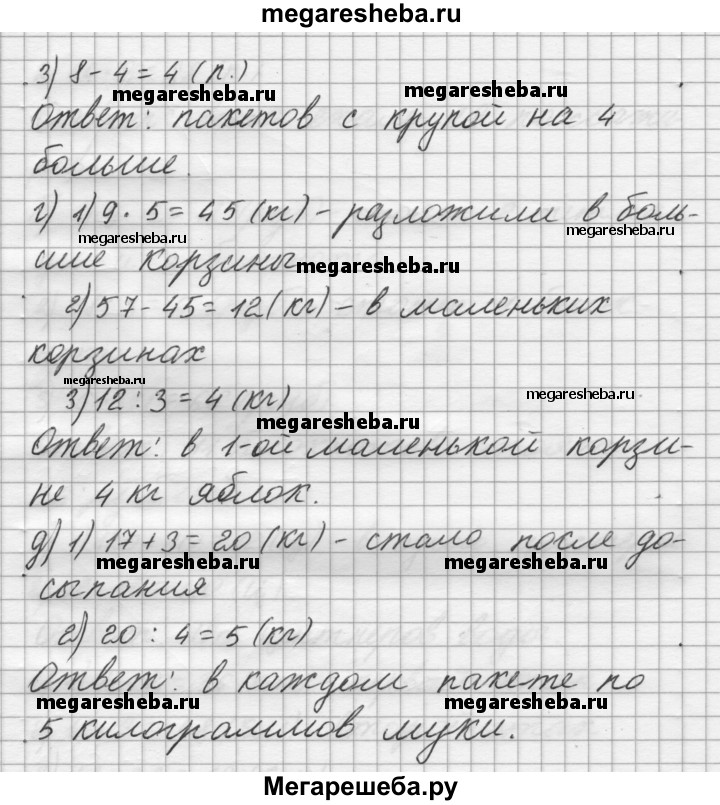 megaresheba.ru
3) 8 - 4 = 4 (п.)
megaresheba.ru megaresheba.ru
Ответ: пакетов с крупой на 4
больше.
г) 1) 9 · 5 = 45 (кг) - разложили в боль-
megaresheba.ru megaresheba.ru
шие корзины
megaresheba.ru
2) 57 - 45 = 12 (кг) - в маленьких
корзинах
megaresheba.ru megaresheba.ru
3) 12 : 3 = 4 (кг)
megaresheba.ru
Ответ: в 1-ой маленькой корзи-
не 4 кг яблок.
д) 1) 17 + 3 = 20 (кг) - стало после до-
megaresheba.ru megaresheba.ru
сыпания
2) 20 : 4 = 5 (кг)
Ответ: в каждом пакете по
megaresheba.ru megaresheba.ru
5 килограммов муки.
Мегарешеба.ру